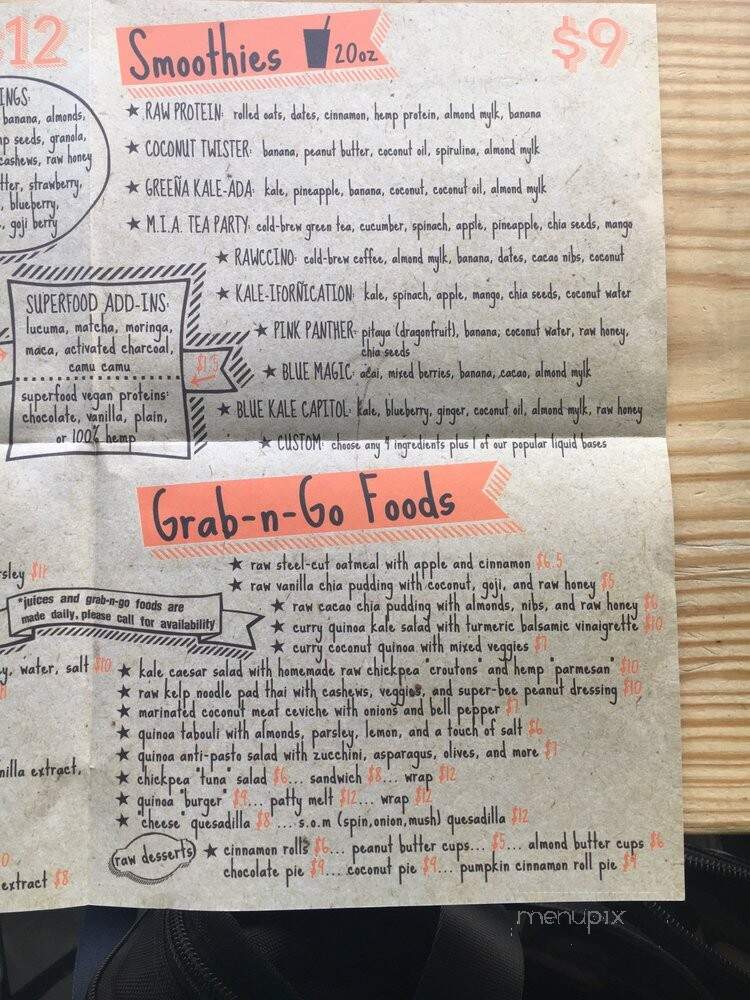 $12
Smoothies 20oz
$9
INGS:
banana, almonds,
seeds, granola,
cashews, raw honey
strawberry,
blueberry,
goji berry
★ RAW PROTEIN: rolled oats, dates, cinnamon, hemp protein, almond mylk, banana
★ COCONUT TWISTER: banana, peanut butter, coconut oil, spirulina, almond mylk
★ GREEÑA KALE-ADA: kale, pineapple, banana, coconut, coconut oil, almond mylk
★ M.I.A. TEA PARTY: cold-brew green tea, cucumber, spinach, apple, pineapple, chia seeds, mango
★ RAWCCINO: cold-brew coffee, almond mylk, banana, dates, cacao nibs, coconut
★ KALE-IFORÑICATION: kale, spinach, apple, mango, chia seeds, coconut water
★ PINK PANTHER: pitaya (dragonfruit), banana, coconut water, raw honey,
chia seeds
★ BLUE MAGIC: açai, mixed berries, banana, cacao, almond mylk
★ BLUE KALE CAPITOL: kale, blueberry, ginger, coconut oil, almond mylk, raw honey
★ CUSTOM: choose any 4 ingredients plus 1 of our popular liquid bases
SUPERFOOD ADD-INS:
lucuma, matcha, moringa,
maca, activated charcoal,
camu camu
superfood vegan proteins:
chocolate, vanilla, plain,
or 100% hemp
$1.5
Grab-n-Go Foods
★ raw steel-cut oatmeal with apple and cinnamon $6.5
★ raw vanilla chia pudding with coconut, goji, and raw honey $5
★ raw cacao chia pudding with almonds, nibs, and raw honey $6
★ curry quinoa kale salad with turmeric balsamic vinaigrette $10
★ curry coconut quinoa with mixed veggies $7
★ kale caesar salad with homemade raw chickpea "croutons" and hemp "parmesan" $10
★ raw kelp noodle pad thai with cashews, veggies, and super-bee peanut dressing $10
★ marinated coconut meat ceviche with onions and bell pepper $7
★ quinoa tabouli with almonds, parsley, lemon, and a touch of salt $6
★ quinoa anti-pasto salad with zucchini, asparagus, olives, and more $7
★ chickpea "tuna" salad $6... sandwich $8... wrap $12
★ quinoa "burger" $9... patty melt $12... wrap $12
★ "cheese" quesadilla $8 ... s.o.m (spin,onion,mush) quesadilla $12
raw desserts
★ cinnamon rolls $6... peanut butter cups... $5... almond butter cups $6
chocolate pie $9... coconut pie $9... pumpkin cinnamon roll pie $9
rsley $11
*juices and grab-n-go foods are
made daily, please call for availability
water, salt $10
nilla extract,
extract $8
menupix